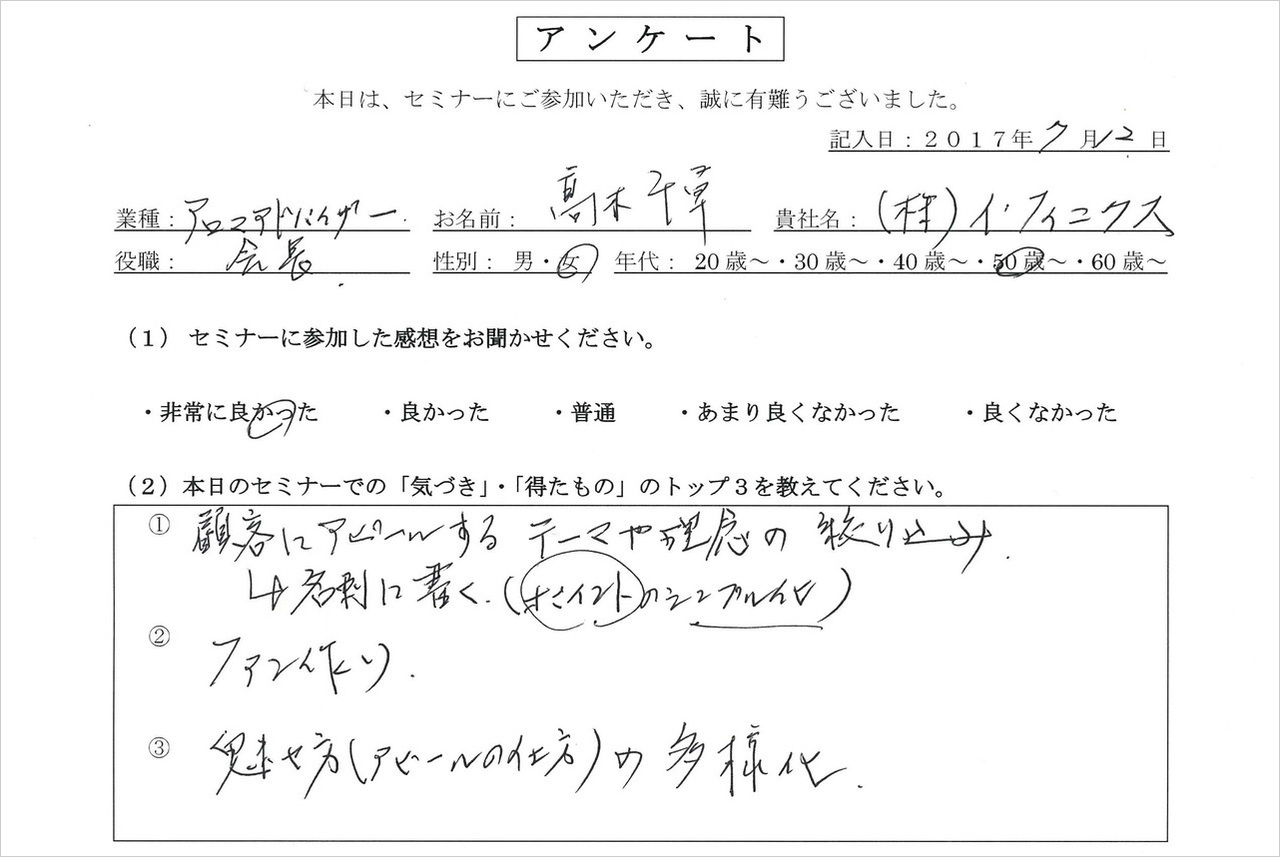 アンケート
本日は、セミナーにご参加いただき、誠に有難うございました。
記入日：２０１７年 7 月 12 日
業種：アロマアドバイザー お名前：髙木千草 貴社名：(株)イ・フィニクス
役職：会長 性別：男・女 年代：20歳～・30歳～・40歳～・50歳～・60歳～
（１）セミナーに参加した感想をお聞かせください。
・非常に良かった ・良かった ・普通 ・あまり良くなかった ・良くなかった
（２）本日のセミナーでの「気づき」・「得たもの」のトップ３を教えてください。
① 顧客にアピールするテーマや理念の絞り込み.
↳名刺に書く.(ポイントのシンプル化)
② ファン作り.
③ 魅せ方(アピールの仕方)の多様化.